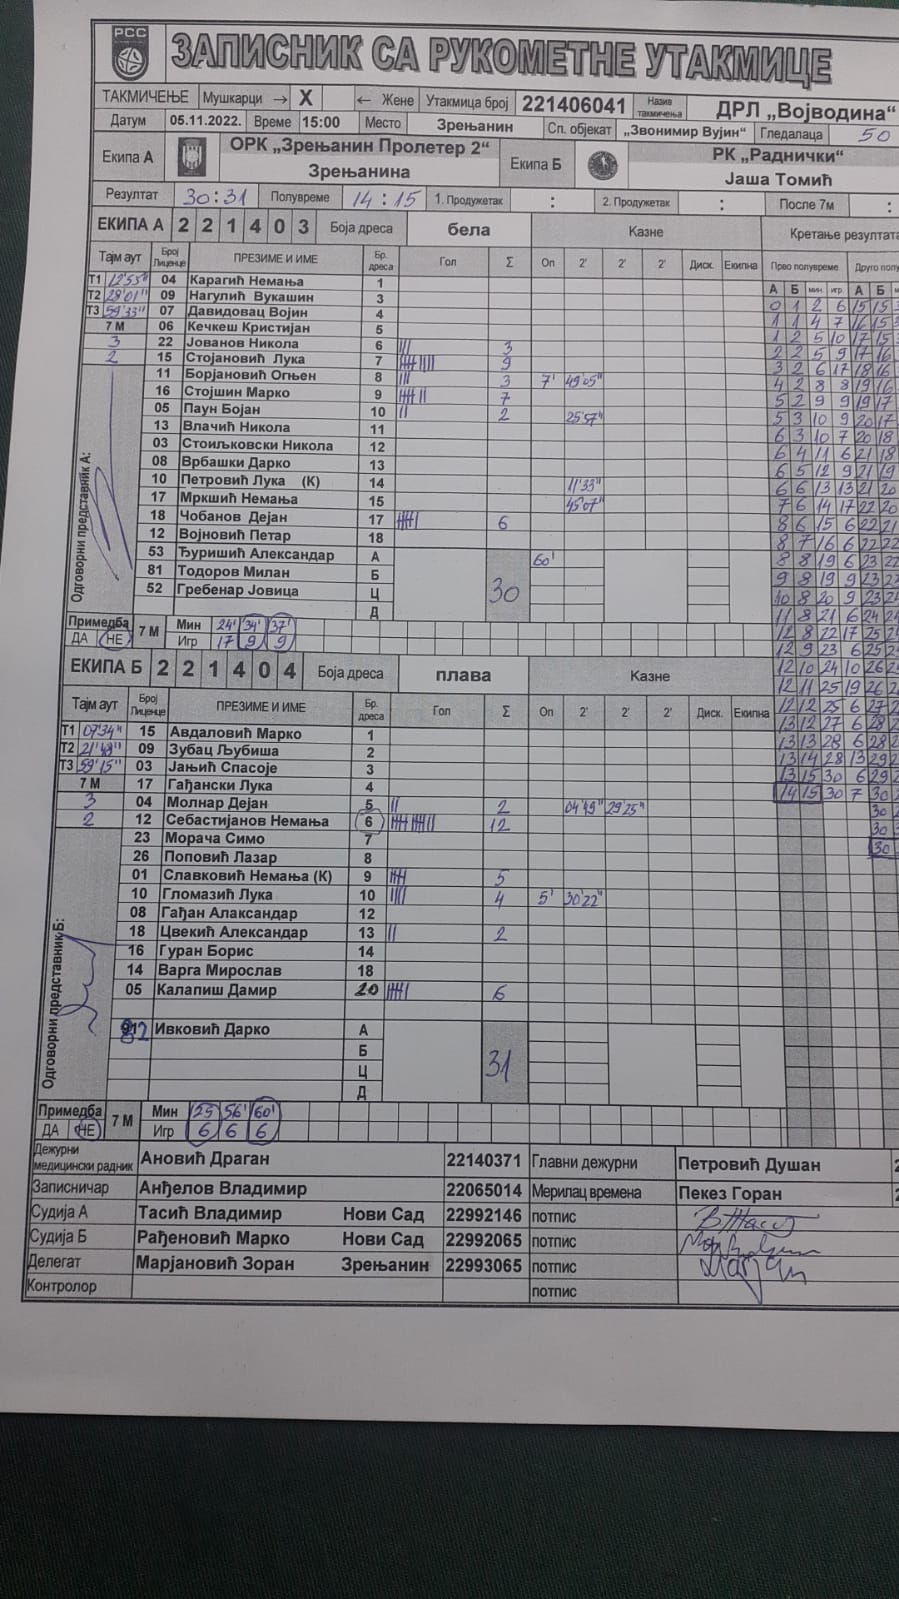 РСС
ЗАПИСНИК СА РУКОМЕТНЕ УТАКМИЦЕ
ТАКМИЧЕЊЕ Мушкарци → X ← Жене Утакмица број 221406041 Назив такмичења ДРЛ „Војводина“
Датум 05.11.2022. Време 15:00 Место Зрењанин Сп. објекат „Звонимир Вујин“ Гледалаца 50
Екипа А ОРК „Зрењанин Пролетер 2“ Зрењанина Екипа Б РК „Раднички“ Јаша Томић
Резултат 30:31 Полувреме 14:15 1. Продужетак : 2. Продужетак : После 7м :
ЕКИПА А 2 2 1 4 0 3 Боја дреса бела Казне Кретање резултата
Тајм аут Број Лиценце ПРЕЗИМЕ И ИМЕ Бр. дреса Гол Σ Оп 2' 2' 2' Диск. Екипна Прво полувреме Друго полу
А Б мин. игр. А Б
T1 12'55" 04 Карагић Немања 1
T2 28'01" 09 Нагулић Вукашин 3
T3 59'33" 07 Давидовац Војин 4
7 М 06 Кечкеш Кристијан 5
3 22 Јованов Никола 6 3
2 15 Стојановић Лука 7 9
11 Борјановић Огњен 8 3 7' 49'05"
16 Стојшин Марко 9 7
05 Паун Бојан 10 2 25'57"
13 Влачић Никола 11
03 Стоиљковски Никола 12
08 Врбашки Дарко 13
10 Петровић Лука (К) 14 11'33"
17 Мркшић Немања 15 45'07"
18 Чобанов Дејан 17 6
12 Војновић Петар 18
53 Ђуришић Александар А 60'
81 Тодоров Милан Б
52 Гребенар Јовица Ц 30
Д
Одговорни представник А:
Примедба ДА НЕ 7 М Мин 24' 34' 37'
Игр 17 9 9
0 1 2 6 15 15
1 1 4 7 16 15
1 2 5 10 17 15
2 2 5 9 17 16
3 2 6 17 18 16
4 2 8 8 19 16
5 2 9 9 19 17
5 3 10 9 20 17
6 3 10 7 20 18
6 4 11 6 21 18
6 5 12 9 21 19
6 6 13 13 21 20
7 6 14 17 22 20
8 6 15 6 22 21
8 7 16 6 22 22
8 8 19 6 23 22
9 8 19 9 23
10 8 20 9 23
11 8 21 6 24
12 8 22 17 25
12 9 23 6 25
12 10 24 10 26
12 11 25 19 26
12 12 25 6 27
13 12 27 6 28
13 13 28 6 28
13 14 28 13 29
13 15 30 6 29
14 15 30 7 30
30
30
30
ЕКИПА Б 2 2 1 4 0 4 Боја дреса плава Казне
Тајм аут Број Лиценце ПРЕЗИМЕ И ИМЕ Бр. дреса Гол Σ Оп 2' 2' 2' Диск. Екипна
T1 07'34" 15 Авдаловић Марко 1
T2 21'49" 09 Зубац Љубиша 2
T3 59'15" 03 Јањић Спасоје 3
7 М 17 Гађански Лука 4
3 04 Молнар Дејан 5 2 04'49" 29'25"
2 12 Себастијанов Немања 6 12
23 Морача Симо 7
26 Поповић Лазар 8
01 Славковић Немања (К) 9 5
10 Гломазић Лука 10 4 5' 30'22"
08 Гађан Алаксандар 12
18 Цвекић Александар 13 2
16 Гуран Борис 14
14 Варга Мирослав 18
05 Калапиш Дамир 20 6
Ивковић Дарко А
Б
Ц 31
Д
Одговорни представник Б:
Примедба ДА НЕ 7 М Мин 25 56' 60'
Игр 6 6 6
Дежурни медицински радник Ановић Драган 22140371 Главни дежурни Петровић Душан
Записничар Анђелов Владимир 22065014 Мерилац времена Пекез Горан
Судија А Тасић Владимир Нови Сад 22992146 потпис
Судија Б Рађеновић Марко Нови Сад 22992065 потпис
Делегат Марјановић Зоран Зрењанин 22993065 потпис
Контролор потпис